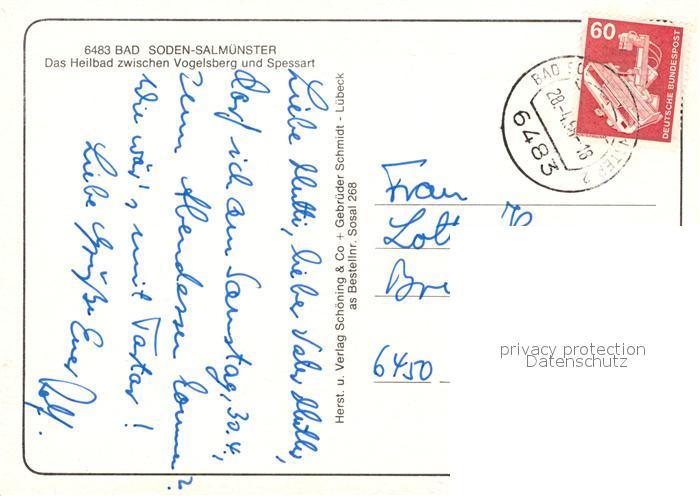 6483 BAD SODEN-SALMÜNSTER
Das Heilbad zwischen Vogelsberg und Spessart
Liebe Mutti, lieber Vater
darf ich am Samstag, 30.4.,
zum Abendessen kommen?
Wie wär's mit Tartar!
Liebe Grüße Euer Rolf.
Herst. u. Verlag Schöning & Co + Gebrüder Schmidt - Lübeck
as Bestellnr. Sosal 268
60
DEUTSCHE BUNDESPOST
BAD SO
6483
Frau
Lot
Bre
6450
privacy protection
Datenschutz